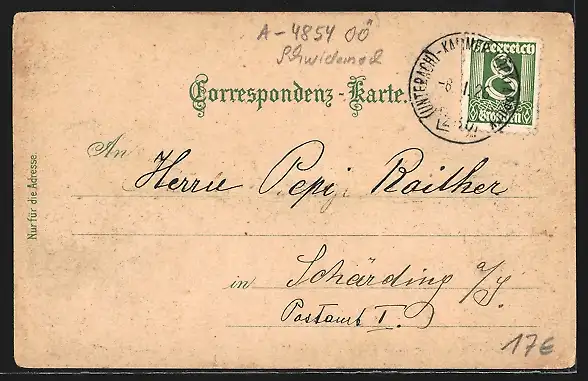 A-4854 OÖ
Correspondenz-Karte.
Österreich
8
Groschen
Nur für die Adresse.
An
Herrn Pepi Raither
in Schärding a/I.
Postamt I.
17€